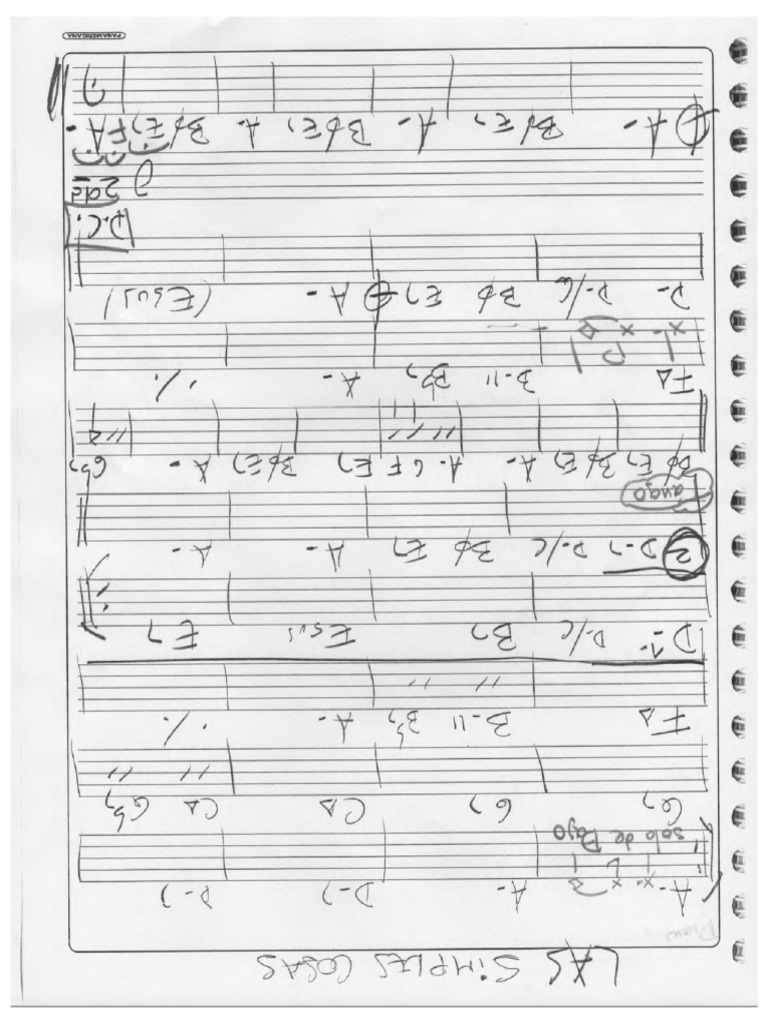 LAS SIMPLES COSAS
Piano
A- A- D-7 D-7
solo de Bajo
G7 G7 CΔ CΔ Gb7
FΔ B-11 Bb7 A- ٪
D-7 D-/C B7 Esus E7
2 D-7 D-/C Bø E7 A- A-
Bø E7 Bø E7 A- A- G F E7 Bø E7 A- Gb7
FΔ B-11 Bb7 A- ٪
D- D-/C Bø E7 A- (Esus)
D.C.
2da
A- Bø E7 A- Bø E7 A- Bø E7 F A-
PANAMERICANA